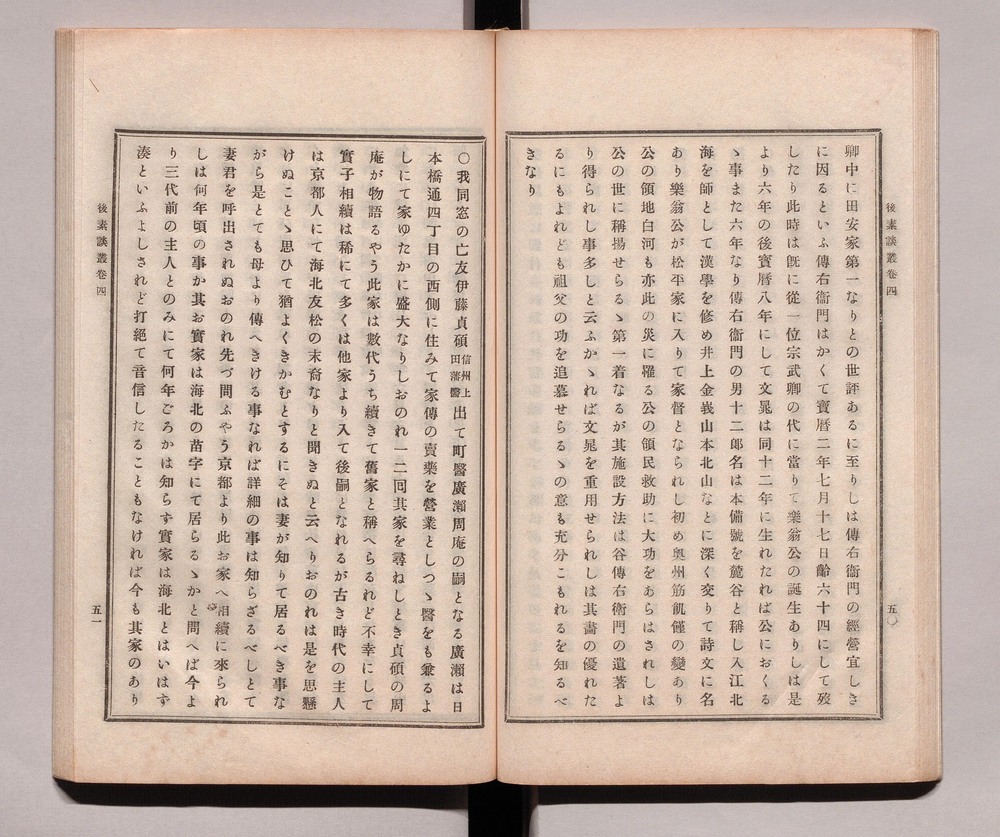 後素談叢卷四
五〇
卿中に田安家第一なりとの世評あるに至りしは傳右衞門の經營宜しき
に因るといふ傳右衞門はかくて寶曆二年七月十七日齡六十四にして歿
したり此時は既に從一位宗武卿の代に當りて樂翁公の誕生ありしは是
より六年の後寶曆八年にして文晁は同十二年に生れたれば公におくる
ヽ事また六年なり傳右衞門の男十二郎名は本備號を麓谷と稱し入江北
海を師として漢學を修め井上金峩山本北山なとに深く交りて詩文に名
あり樂翁公が松平家に入りて家督となられし初め奧州筋飢饉の變あり
公の領地白河も亦此の災に罹る公の領民救助に大功をあらはされしは
公の世に稱揚せらるヽ第一着なるが其施設方法は谷傳右衞門の遺著よ
り得られし事多しと云ふかヽれば文晁を重用せられしは其畵の優れた
るにもよれども祖父の功を追慕せらるヽの意も充分こもれるを知るべ
きなり
〇我同窓の亡友伊藤貞碩信州上田藩醫出て町醫廣瀨周庵の嗣となる廣瀨は日
本橋通四丁目の西側に住みて家傳の賣藥を營業としつヽ醫をも兼るよ
しにて家ゆたかに盛大なりしおのれ一二回其家を尋ねしとき貞碩の周
庵が物語るやう此家は數代うち續きて舊家と稱へらるれど不幸にして
實子相續は稀にて多くは他家より入て後嗣となれるが古き時代の主人
は京都人にて海北友松の末裔なりと聞きぬと云へりおのれは是を思懸
けぬことヽ思ひて猶よくきかむとするにそは妻が知りて居るべき事な
がら是とても母より傳へきける事なれば詳細の事は知らざるべしとて
妻君を呼出されぬおのれ先づ問ふやう京都より此お家へ相續に來られ
しは何年頃の事か其お實家は海北の苗字にて居らるヽかと問へば今よ
り三代前の主人とのみにて何年ごろかは知らず實家は海北とはいはず
湊といふよしされど打絕て音信したることもなければ今も其家のあり
後素談叢卷四
五一